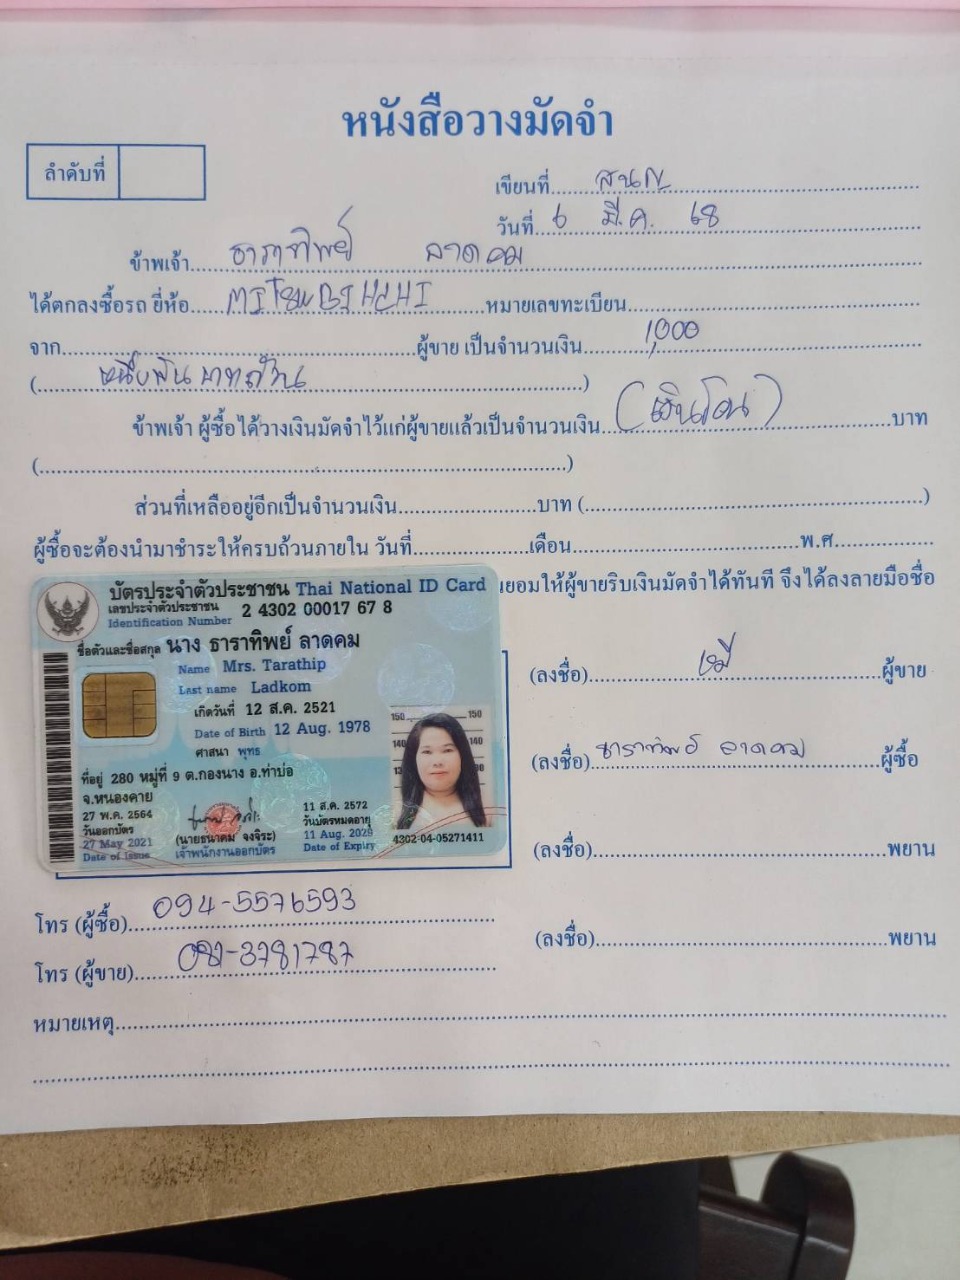 หนังสือวางมัดจำ
ลำดับที่
เขียนที่ สนญ
วันที่ 6 มี.ค. 68
ข้าพเจ้า ธาราทิพย์ ลาดคม
ได้ตกลงซื้อรถ ยี่ห้อ MITSUBISHI หมายเลขทะเบียน
จาก ผู้ขาย เป็นจำนวนเงิน 1,000
(หนึ่งพันบาทถ้วน)
ข้าพเจ้า ผู้ซื้อได้วางเงินมัดจำไว้แก่ผู้ขายแล้วเป็นจำนวนเงิน (เงินโอน) บาท
( )
ส่วนที่เหลืออยู่อีกเป็นจำนวนเงิน บาท ( )
ผู้ซื้อจะต้องนำมาชำระให้ครบถ้วนภายใน วันที่ เดือน พ.ศ.
ยอมให้ผู้ขายริบเงินมัดจำได้ทันที จึงได้ลงลายมือชื่อ
บัตรประจำตัวประชาชน Thai National ID Card
เลขประจำตัวประชาชน 2 4302 00017 67 8
Identification Number
ชื่อตัวและชื่อสกุล นาง ธาราทิพย์ ลาดคม
Name Mrs. Tarathip
Last name Ladkom
เกิดวันที่ 12 ส.ค. 2521
Date of Birth 12 Aug. 1978
ศาสนา พุทธ
ที่อยู่ 280 หมู่ที่ 9 ต.กองนาง อ.ท่าบ่อ
จ.หนองคาย
27 พ.ค. 2564
วันออกบัตร
27 May 2021
Date of Issue
(นายธนาคม จงจิระ)
เจ้าพนักงานออกบัตร
11 ส.ค. 2572
วันบัตรหมดอายุ
11 Aug. 2029
Date of Expiry
150 150
140 140
4302-04-05271411
(ลงชื่อ) ผู้ขาย
(ลงชื่อ) ธาราทิพย์ ลาดคม ผู้ซื้อ
(ลงชื่อ) พยาน
(ลงชื่อ) พยาน
โทร (ผู้ซื้อ) 094-5576593
โทร (ผู้ขาย) 081-3781787
หมายเหตุ